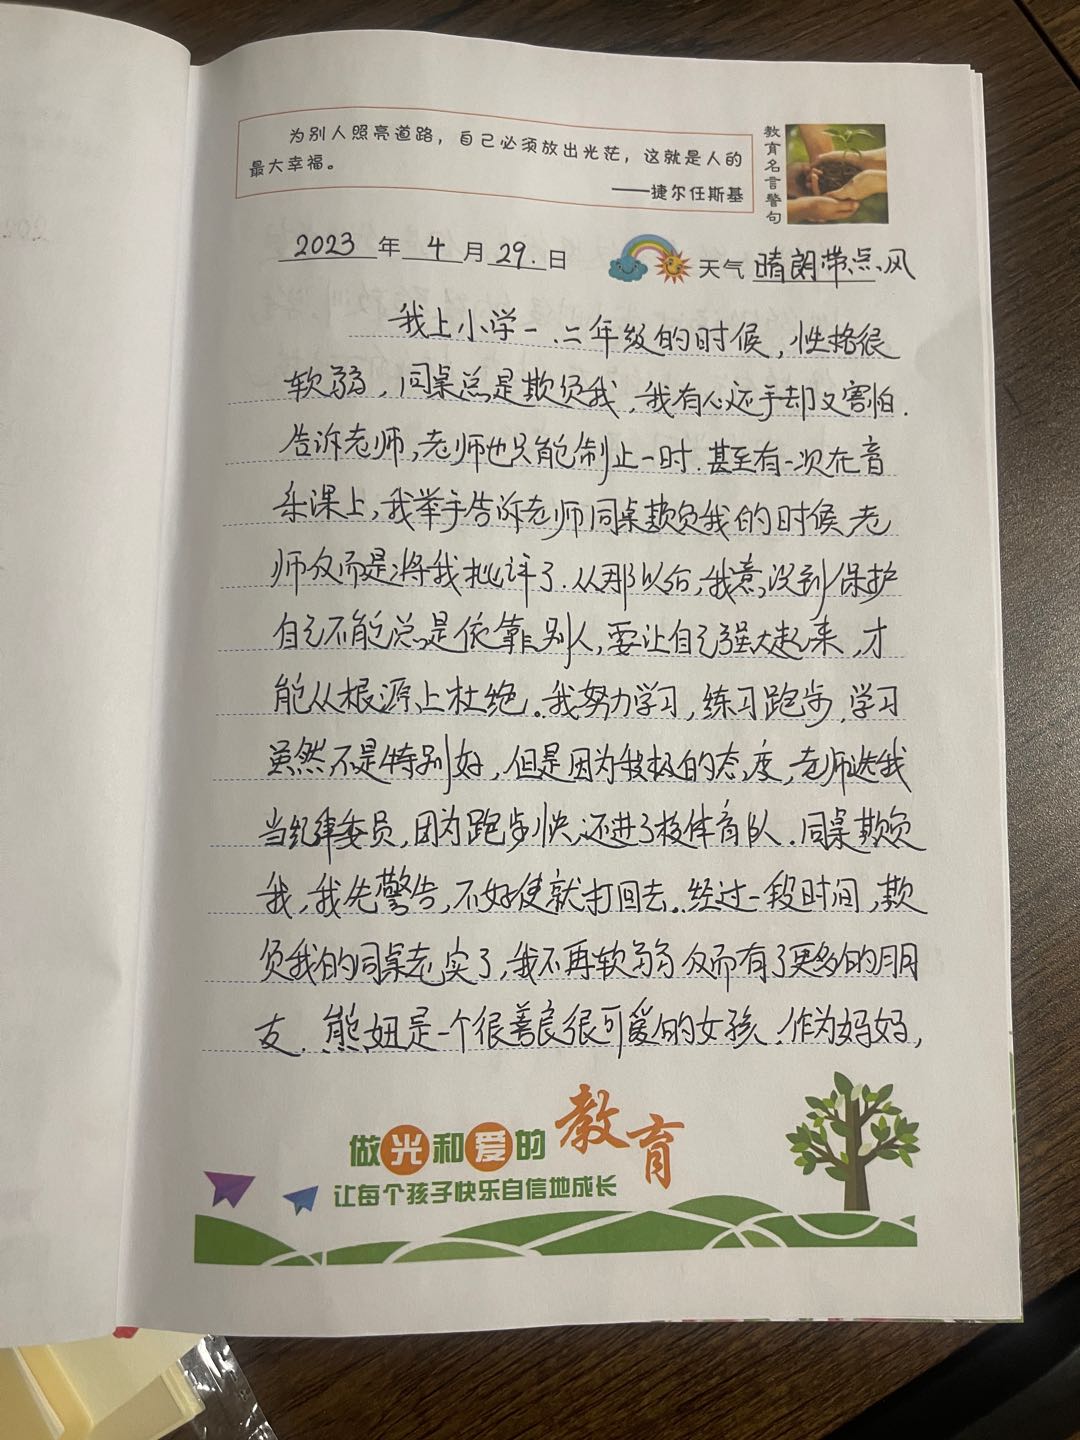 为别人照亮道路，自己必须放出光茫，这就是人的
最大幸福。
——捷尔任斯基
教育名言警句
2023 年 4 月 29. 日
天气 晴朗带点风
我上小学一、二年级的时候，性格很
软弱，同桌总是欺负我，我有心还手却又害怕.
告诉老师，老师也只能制止一时.甚至有一次在音
乐课上，我举手告诉老师同桌欺负我的时候，老
师反而是将我批评了.从那以后，我意识到保护
自己不能总是依靠别人，要让自己强大起来，才
能从根源上杜绝。我努力学习，练习跑步.学习
虽然不是特别好，但是因为积极的态度，老师选我
当纪律委员，因为跑步快，还进了校体育队.同桌欺负
我，我先警告，不好使就打回去。经过一段时间，欺
负我的同桌老实了，我不再软弱反而有了更多的朋
友.熊妞是一个很善良很可爱的女孩.作为妈妈，
做光和爱的教育
让每个孩子快乐自信地成长